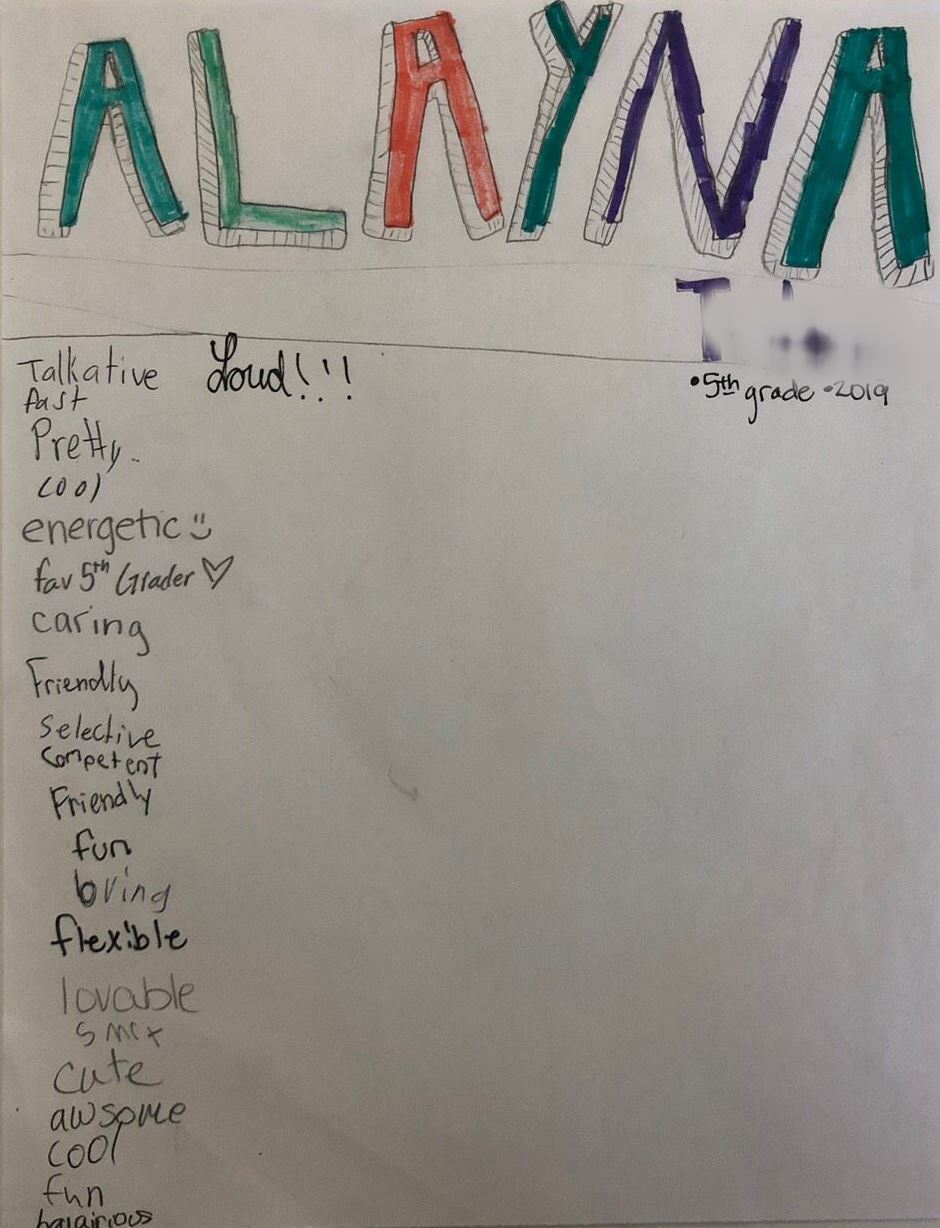 ALAYNA
Talkative Loud!!!
•5th grade •2019
fast
Pretty
cool
energetic
fav 5th Grader ♡
caring
Friendly
Selective
Competent
Friendly
fun
flexible
lovable
cute
awsome
cool
fun